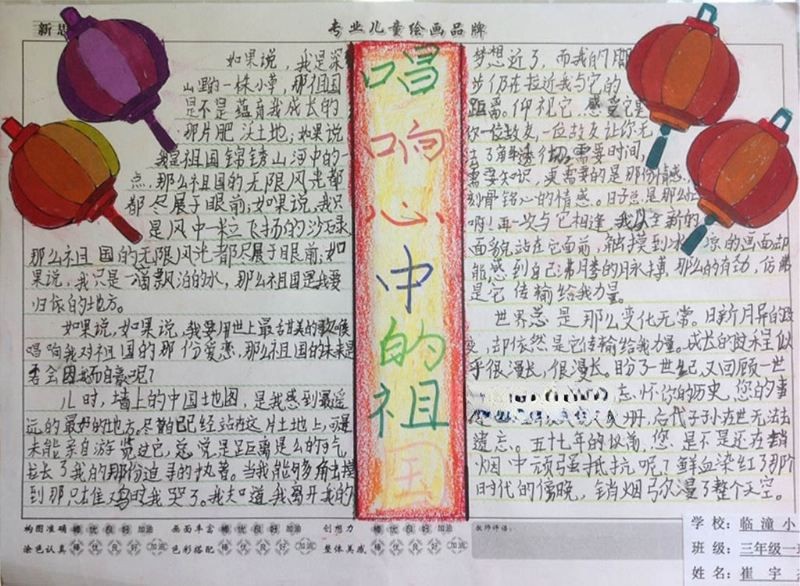 新思
专业儿童绘画品牌
唱响心中的祖国
如果说，我是深
山野的一株小草，那祖国
是不是蕴育我成长的
那片肥沃土地；如果说
我是祖国锦绣山河中的一
点，那么祖国的无限风光都
都尽展于眼前；如果说，我只
是风中一粒飞扬的沙砾，
那么祖国的无限风光都尽展于眼前；如
果说，我只是一滴飘泊的水，那么祖国是我要
归依的地方。
如果说，如果说，我要用世上最甜美的歌喉
唱响我对祖国的那份爱恋，那么祖国的未来是
否会因我而自豪呢？
儿时，墙上的中国地图，是我感到最遥
远的最好的地方，尽管已经站在这片土地上，可是
未能亲自游览过它，总觉是距离是么的
拉长了我的那份追寻的执着。当我能够
到那只雄鸡时我哭了。我知道，我离开我的
梦想近了，而我的脚
步仍在拉近我与它的
距离。仰视它，感觉它是
你一位故友，一位故友让你无
需要时间，
需要知识，更需要的是那份情感
刻骨铭心的情感。日子总是那么
啊！再一次与它相逢，我以全新的
面貌站在它面前，触摸到冰凉的画面却
能感到自己沸腾的脉搏，那么的有劲，仿佛
是它传输给我力量。
世界总是那么变化无常。日新月异的
变，却依然是它传输给我力量。成长的
乎很漫长，很漫长。盼了一世纪，又回顾一世
忘怀你的历史，您的事
册，后代子子
遗忘。五十七年的叔爷，您是不是还在
烟中顽强抵抗呢？鲜血染红了那个
时代的傍晚，销烟弓尔漫了整个天空。
构图准确 棒 优 良 好 加油 画面丰富 棒 优 良 好 加油 创想力 棒 优 良 好 加油 教师评语：
涂色认真 棒 优 良 好 加油 色彩搭配 棒 优 良 好 加油 整体美感 棒 优 良 好 加油
学校：临潼小
班级：三年级一
姓名：崔宇